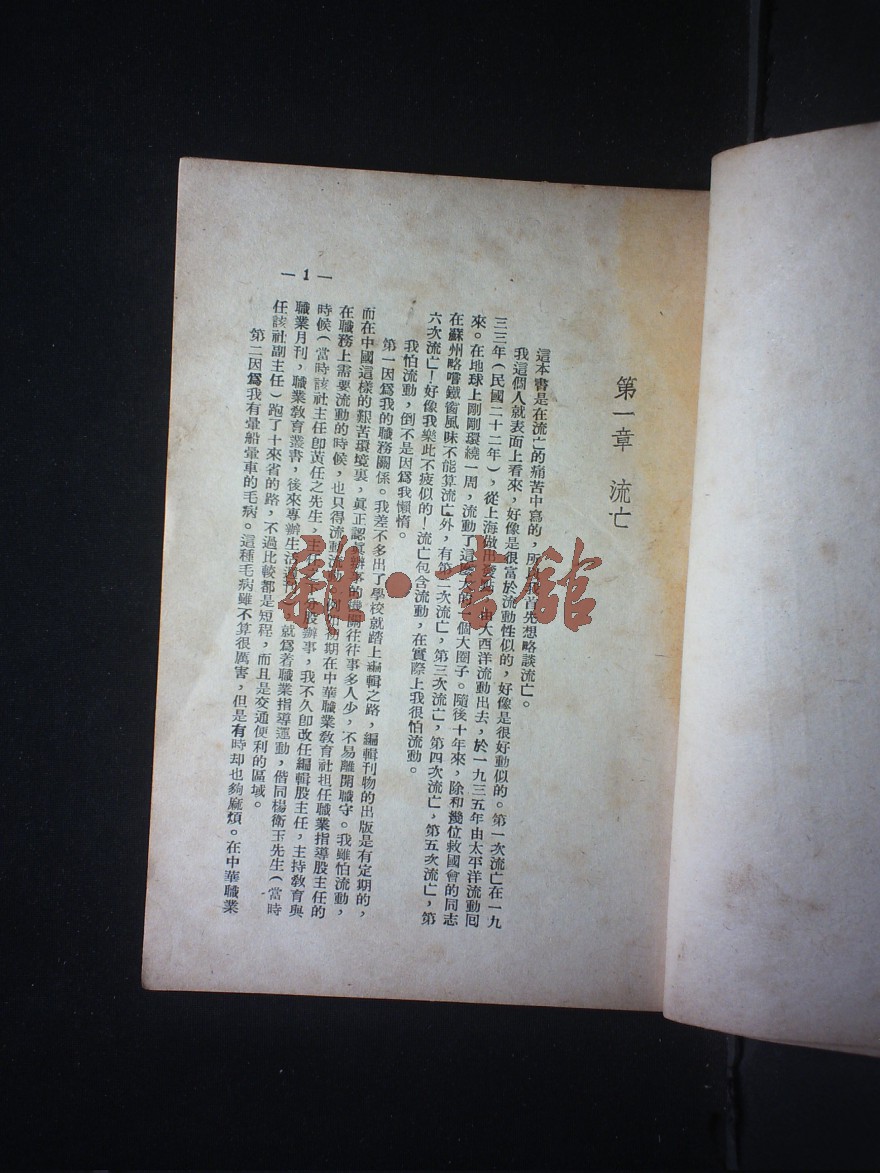 第一章 流亡
這本書是在流亡的痛苦中寫的，所以我首先想略談流亡。
我這個人就表面上看來，好像是很富於流動性似的，好像是很好動似的。第一次流亡在一九
三三年（民國二十二年），從上海做出發點，由大西洋流動出去，於一九三五年由太平洋流動囘
來。在地球上剛剛環繞一周，流動了這麼大的一個大圈子。隨後十年來，除和幾位救國會的同志
在蘇州略嘗鐵窗風味不能算流亡外，有第二次流亡，第三次流亡，第四次流亡，第五次流亡，第
六次流亡！好像我樂此不疲似的！流亡包含流動，在實際上我很怕流動。
我怕流動，倒不是因爲我懶惰。
第一因爲我的職務關係。我差不多出了學校就踏上編輯之路，編輯刊物的出版是有定期的，
而在中國這樣的艱苦環境裏，眞正認眞辦事的機關往往事多人少，不易離開職守。我雖怕流動，
在職務上需要流動的時候，也只得流動流動。例如初期在中華職業敎育社担任職業指導股主任的
時候（當時該社主任卽黃任之先生，主任之下分股辦事，我不久卽改任編輯股主任，主持敎育與
職業月刊，職業敎育叢書，後來專辦生活週刊），就爲着職業指導運動，偕同楊衛玉先生（當時
任該社副主任）跑了十來省的路，不過比較都是短程，而且是交通便利的區域。
第二因爲我有暈船暈車的毛病。這種毛病雖不算很厲害，但是有時却也夠麻煩。在中華職業
— 1 —
雜·書館